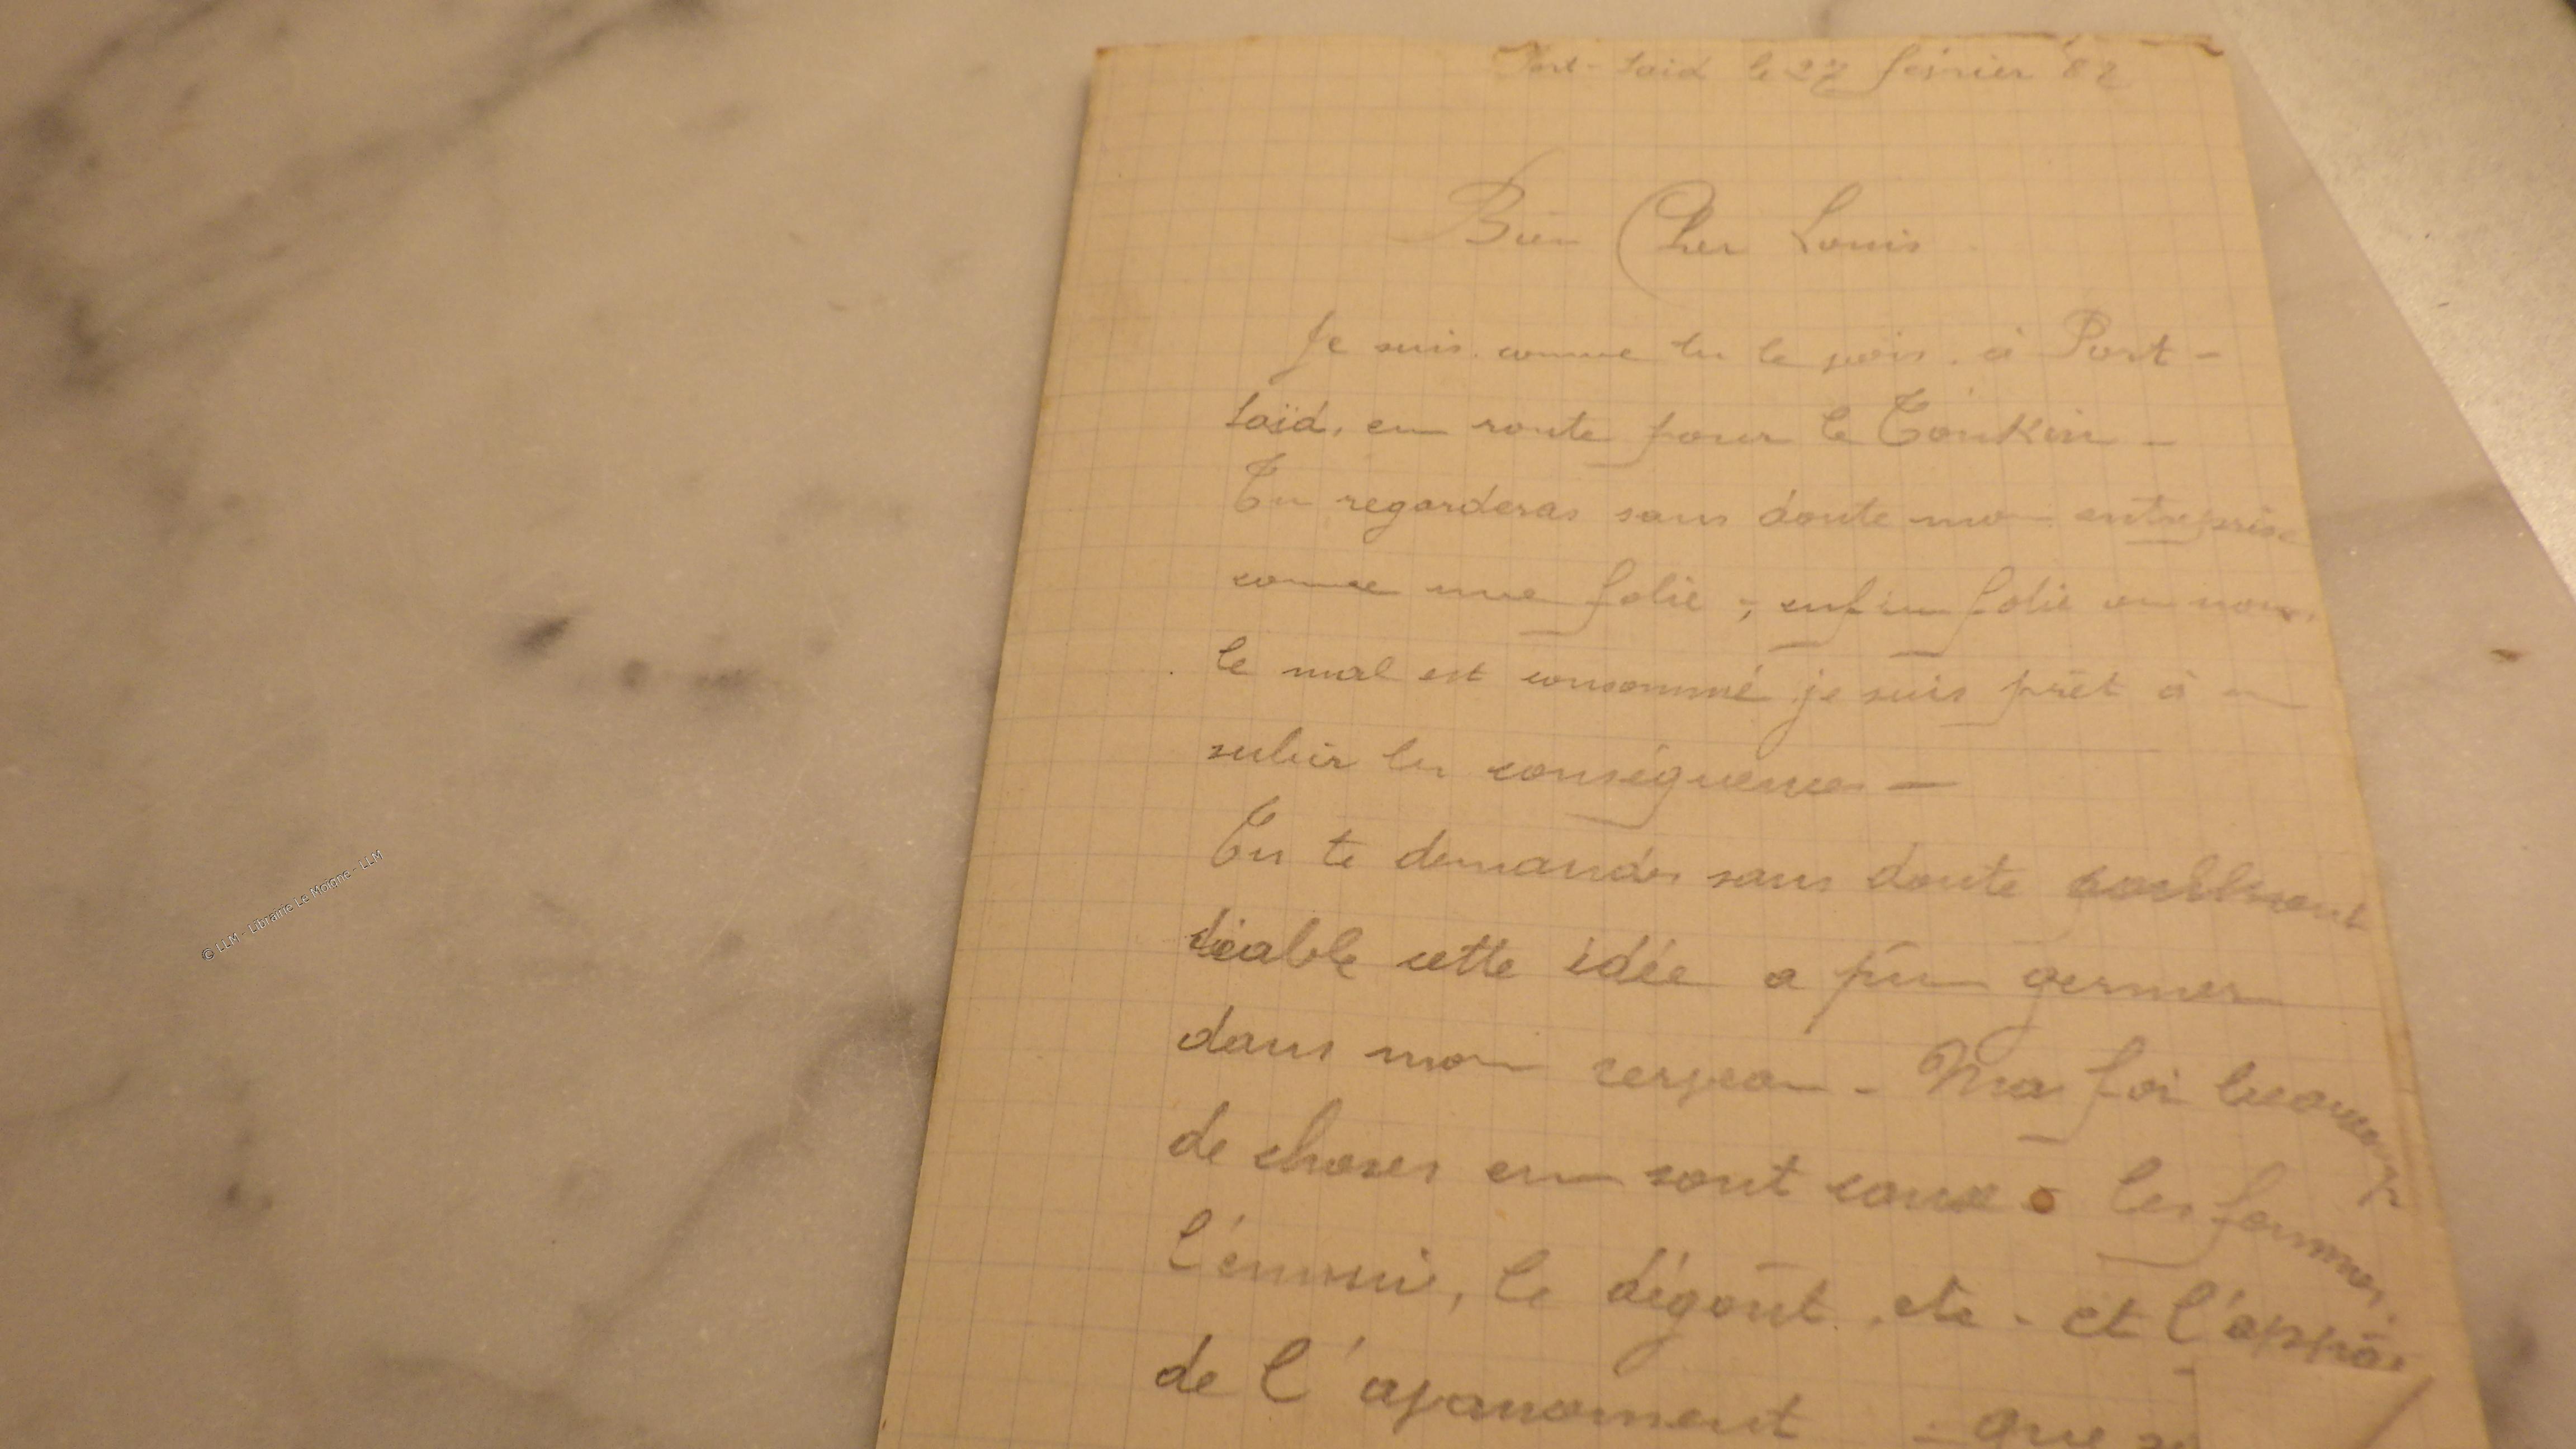 Port-Saïd le 27 février 82
Bien Cher Louis
Je suis, comme tu le vois, à Port-
Saïd, en route pour le Tonkin -
Tu regarderas sans doute mon entreprise
comme une folie ; enfin folie ou non,
le mal est consommé je suis prêt à en
subir les conséquences -
Tu te demandes sans doute comment
diable cette idée a pu germer
dans mon cerveau - Ma foi beaucoup
de choses en sont cause les femmes,
l'ennui, le dégoût, etc - et l'appât
de l'avancement - que
© LLM - Librairie Le Moigne - LLM